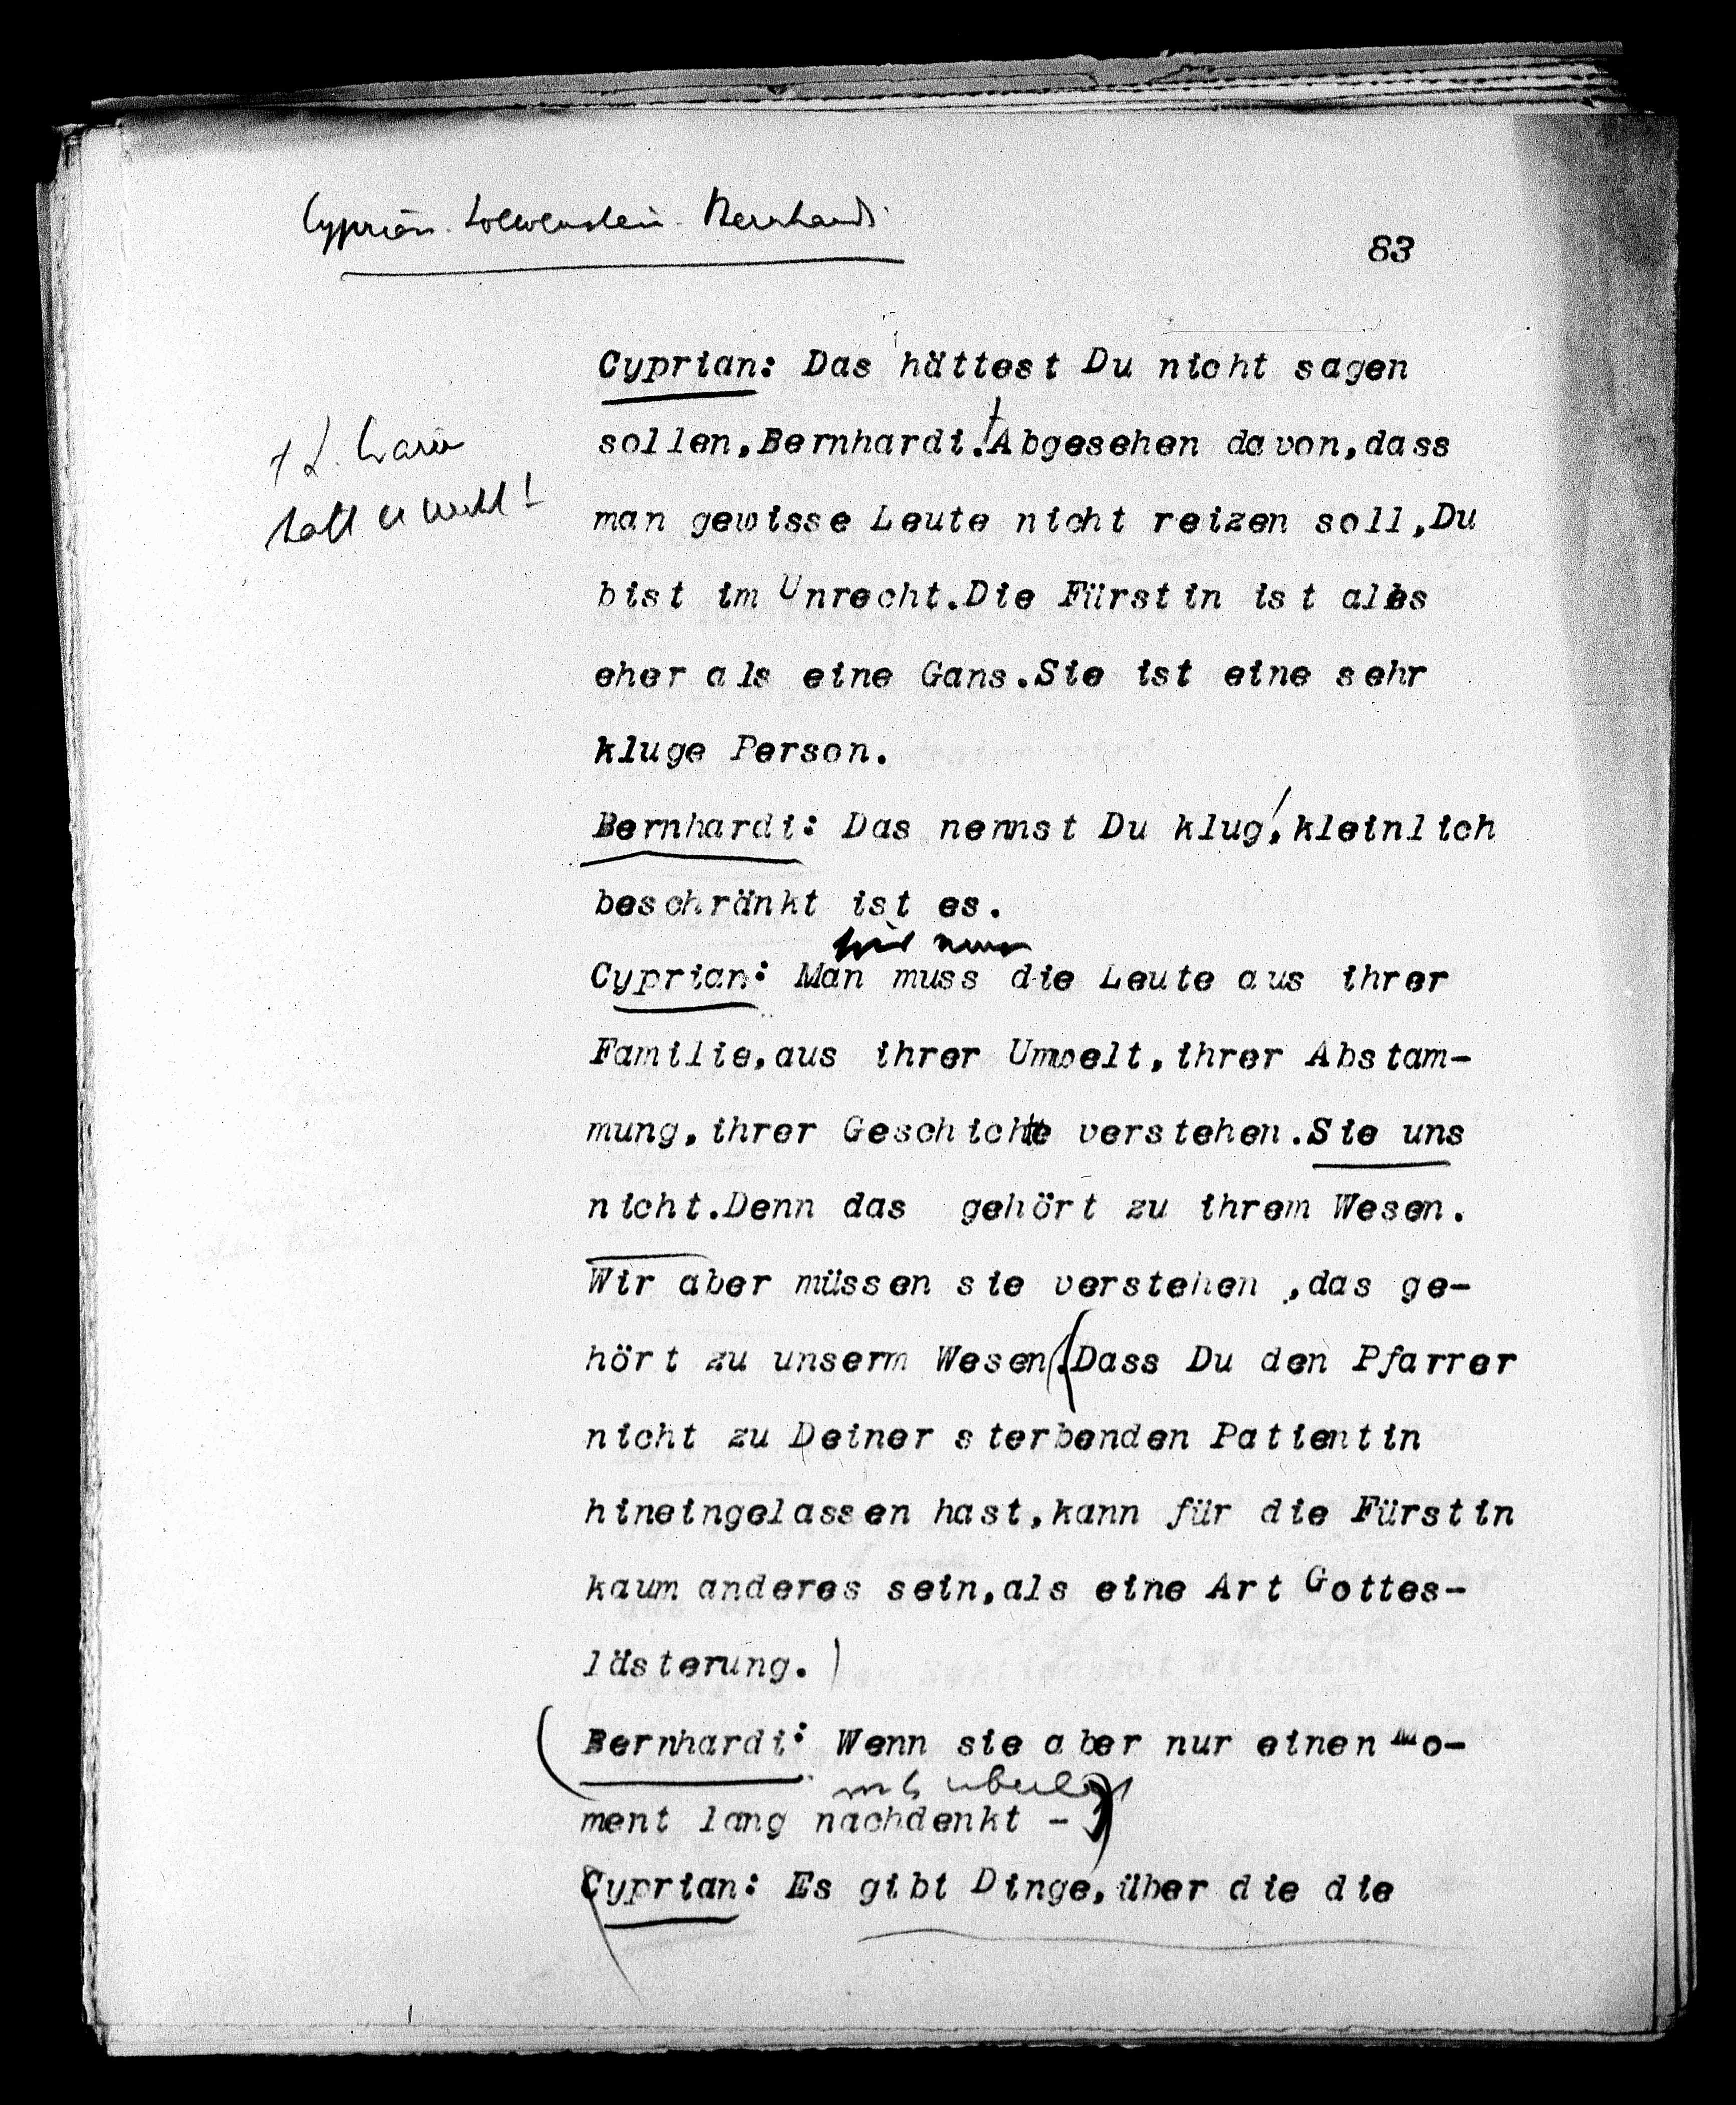 Cyprian. Loewenstein. Bernhardi.
83
Cyprian: Das hättest Du nicht sagen
sollen,Bernhardi.Abgesehen davon,dass
man gewisse Leute nicht reizen soll,Du
bist im Unrecht.Die Fürstin ist alles
eher als eine Gans.Sie ist eine sehr
kluge Person.
Bernhardi: Das nennst Du klug!,kleinlich
beschränkt ist es.
Cyprian: Man muss die Leute aus ihrer
Familie,aus ihrer Umwelt,ihrer Abstam-
mung,ihrer Geschichte verstehen.Sie uns
nicht.Denn das gehört zu ihrem Wesen.
Wir aber müssen sie verstehen ,das ge-
hört zu unserm Wesen.(Dass Du den Pfarrer
nicht zu Deiner sterbenden Patientin
hineingelassen hast,kann für die Fürstin
kaum anderes sein,als eine Art Gottes-
lästerung.)
(Bernhardi: Wenn sie aber nur einen Mo-
ment lang nachdenkt -)
(Cyprian: Es gibt Dinge,über die die